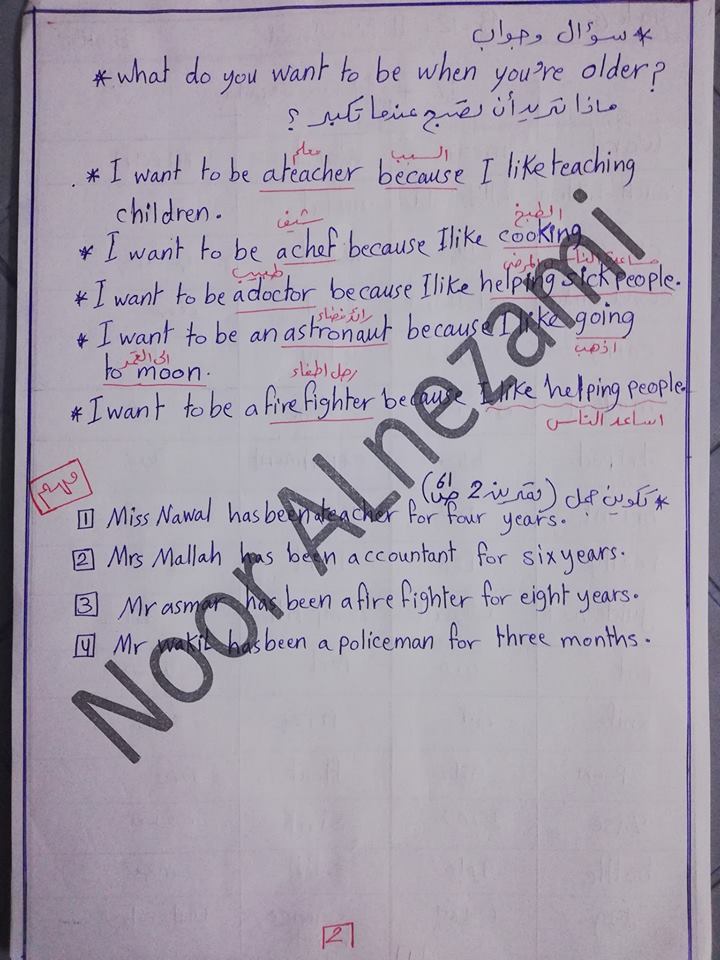 * سؤال وجواب
* What do you want to be when you're older?
ماذا تريد أن تصبح عندما تكبر ؟
معلم السبب
* I want to be a teacher because I like teaching
children.
شيف الطبخ
* I want to be a chef because I like cooking
طبيب مساعدة الناس المرضى
* I want to be a doctor because I like helping sick people.
رائد فضاء
* I want to be an astronaut because I like going
الى القمر اذهب
to moon.
رجل اطفاء
* I want to be a fire fighter because I like helping people.
اساعد الناس
مهم
* تكوين جمل (تمرين 2 ص 61)
1 Miss Nawal has been teacher for four years.
2 Mrs Mallah has been accountant for six years.
3 Mr asmar has been a fire fighter for eight years.
4 Mr wakil has been a policeman for three months.
Noor ALnezami
2